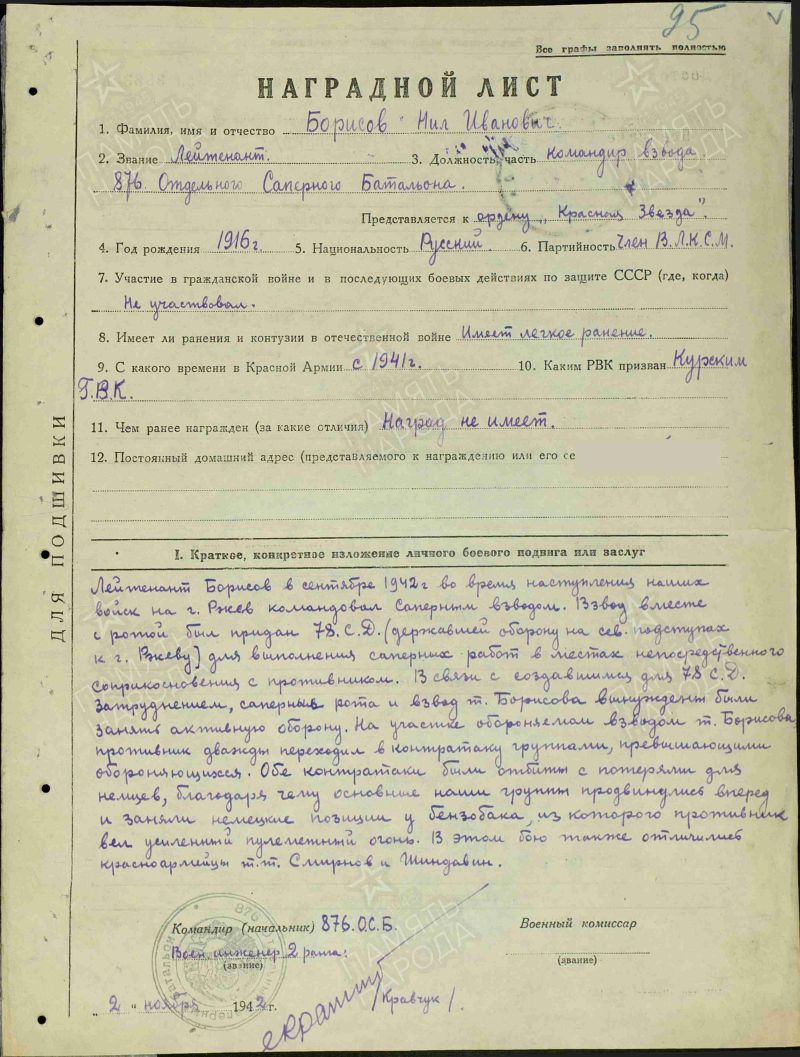 95
Все графы заполнять полностью
НАГРАДНОЙ ЛИСТ
1. Фамилия, имя и отчество Борисов Нил Иванович.
2. Звание Лейтенант. 3. Должность, часть командир взвода
876. Отдельного Саперного Батальона.
Представляется к ордену „Красная Звезда".
4. Год рождения 1916 г. 5. Национальность Русский. 6. Партийность Член В.Л.К.С.М.
7. Участие в гражданской войне и в последующих боевых действиях по защите СССР (где, когда)
Не участвовал.
8. Имеет ли ранения и контузии в отечественной войне Имеет легкое ранение.
9. С какого времени в Красной Армии с 1941 г. 10. Каким РВК призван Курским
Г.В.К.
11. Чем ранее награжден (за какие отличия) Наград не имеет.
12. Постоянный домашний адрес (представляемого к награждению или его се
ДЛЯ ПОДШИВКИ
I. Краткое, конкретное изложение личного боевого подвига или заслуг
Лейтенант Борисов в сентябре 1942 г во время наступления наших
войск на г. Ржев командовал Саперным взводом. Взвод вместе
с ротой был придан 78. С.Д. (державшей оборону на сев. подступах
к г. Ржеву) для выполнения саперных работ в местах непосредственного
соприкосновения с противником. В связи с создавшимся для 78 С.Д.
затруднением, саперная рота и взвод т. Борисова вынуждены были
занять активную оборону. На участке обороняемом взводом т. Борисова
противник дважды переходил в контратаку группами, превышающими
обороняющихся. Обе контратаки были отбиты с потерями для
немцев, благодаря чему основные наши группы продвинулись вперед
и заняли немецкие позиции у бензобака, из которого противник
вел усиленный пулеметный огонь. В этом бою также отличились
красноармейцы т.т. Смирнов и Шиндавин.
Командир (начальник) 876.О.С.Б. Военный комиссар
Воен. инженер 2 ранга:
(звание) (звание)
„2" ноября 1942 г. /Кравчук/.
ПАМЯТЬ НАРОДА